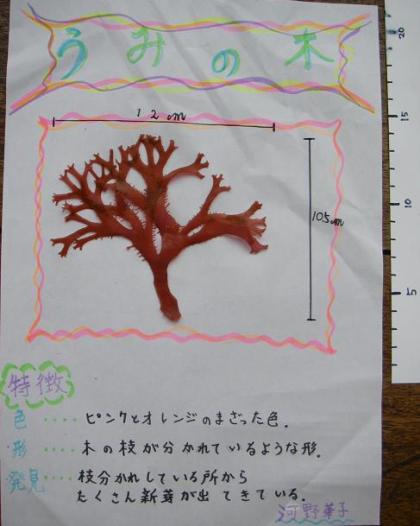 うみの木
12cm
105cm
20
15
10
5
特徴
色‥‥ピンクとオレンジのまざった色.
形‥‥木の枝が分かれているような形.
発見‥‥枝分かれしている所から
たくさん新芽が出てきている.
河野華子